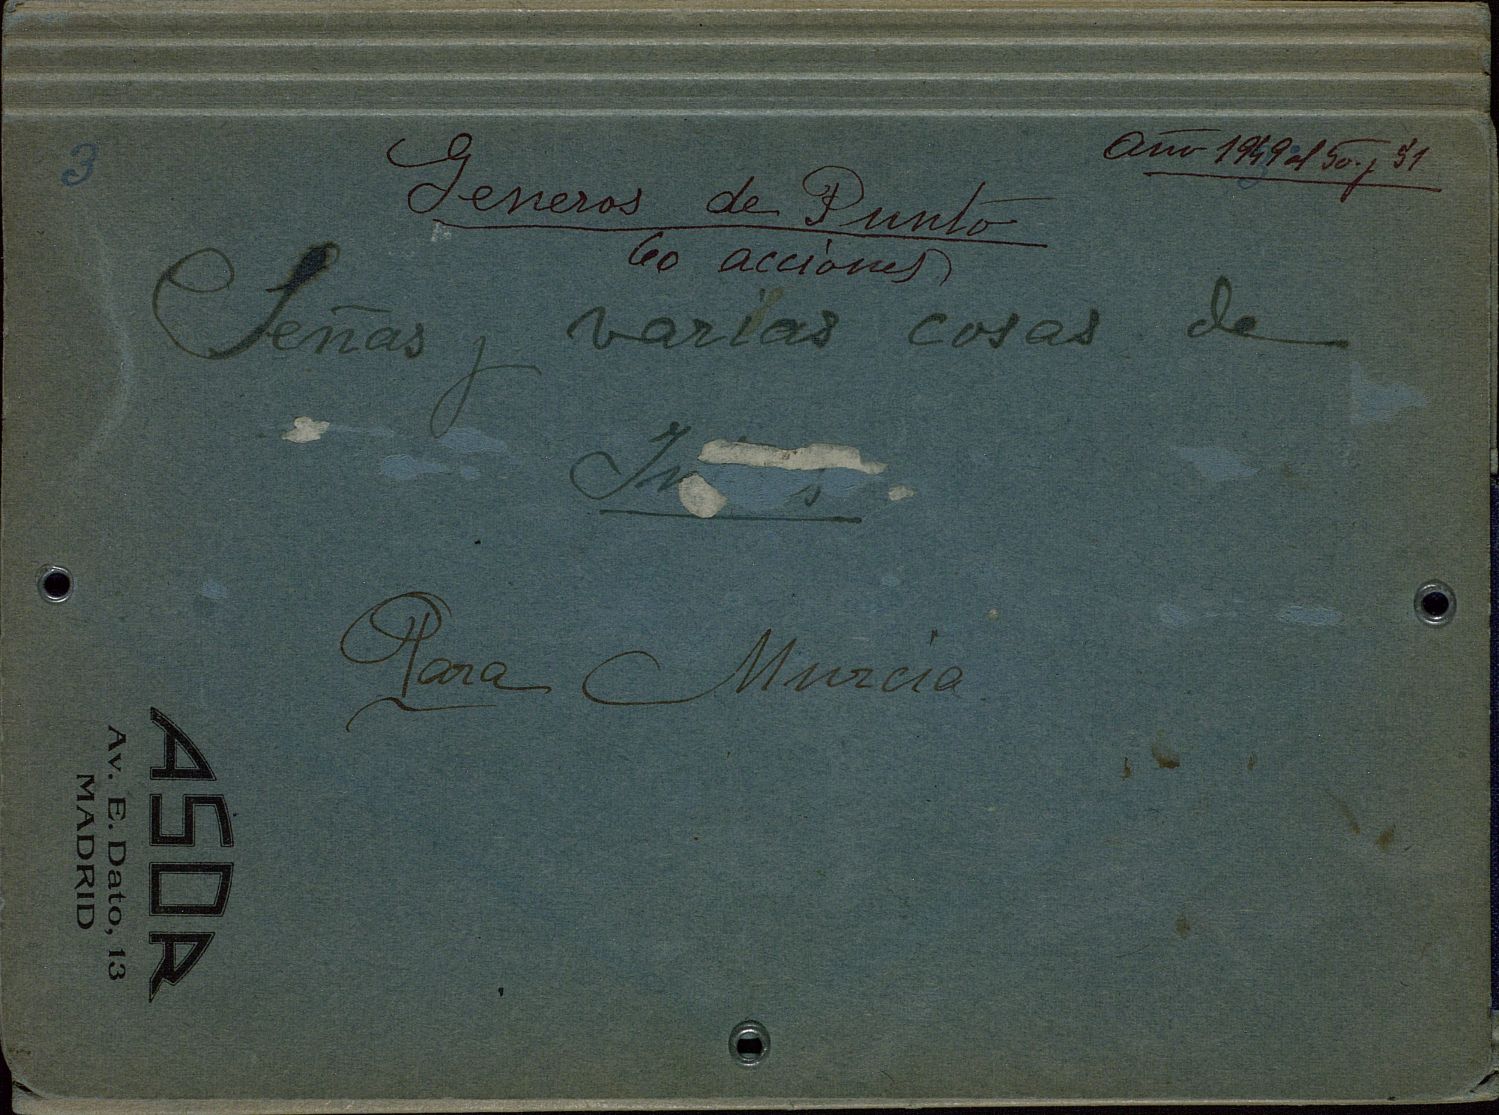 3
Año 1949 al 50 y 51
Generos de Punto
60 acciones
Señas y varias cosas de
Para Murcia
ASDR
Av. E. Dato, 13
MADRID